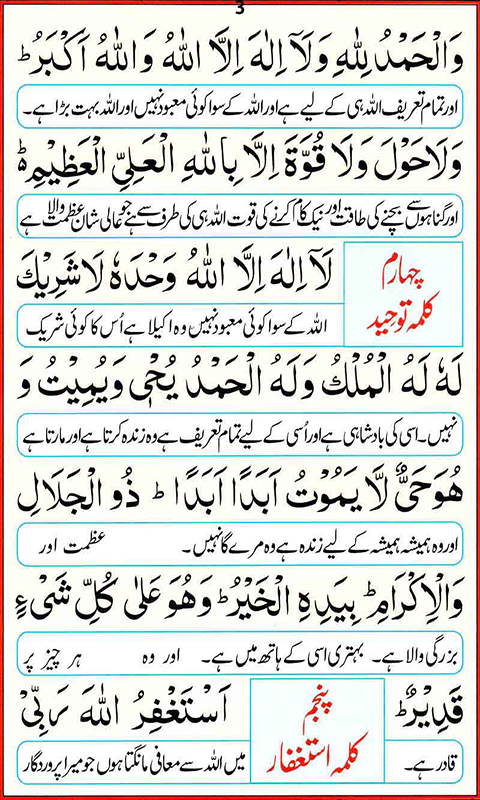 3
وَالْحَمْدُ لِلّٰهِ وَلَآ اِلٰهَ اِلَّا اللّٰهُ وَاللّٰهُ اَكْبَرُ ؕ
اور تمام تعریف اللہ ہی کے لیے ہے اور اللہ کے سوا کوئی معبود نہیں اور اللہ بہت بڑا ہے۔
وَلَا حَوْلَ وَلَا قُوَّةَ اِلَّا بِاللّٰهِ الْعَلِيِّ الْعَظِيْمِ ؕ
اور گناہوں سے بچنے کی طاقت اور نیک کام کرنے کی قوت اللہ ہی کی طرف سے ہے جو عالی شان عظمت والا ہے
چہارم
کلمہ توحید
لَآ اِلٰهَ اِلَّا اللّٰهُ وَحْدَهٗ لَا شَرِيْكَ
اللہ کے سوا کوئی معبود نہیں وہ اکیلا ہے اُس کا کوئی شریک
لَهٗ لَهُ الْمُلْكُ وَلَهُ الْحَمْدُ يُحْيٖ وَيُمِيْتُ وَ
نہیں۔ اسی کی بادشاہی ہے اور اُسی کے لیے تمام تعریف ہے وہ زندہ کرتا ہے اور مارتا ہے
هُوَ حَيٌّ لَّا يَمُوْتُ اَبَدًا اَبَدًا ؕ ذُو الْجَلَالِ
اور وہ ہمیشہ ہمیشہ کے لیے زندہ ہے وہ مرے گا نہیں۔ عظمت اور
وَالْاِكْرَامِ ؕ بِيَدِهِ الْخَيْرُ ؕ وَهُوَ عَلٰى كُلِّ شَیْءٍ
بزرگی والا ہے۔ بہتری اسی کے ہاتھ میں ہے۔ اور وہ ہر چیز پر
قَدِيْرٌ ؕ
قادر ہے۔
پنجم
کلمہ استغفار
اَسْتَغْفِرُ اللّٰهَ رَبِّیْ
میں اللہ سے معافی مانگتا ہوں جو میرا پروردگار